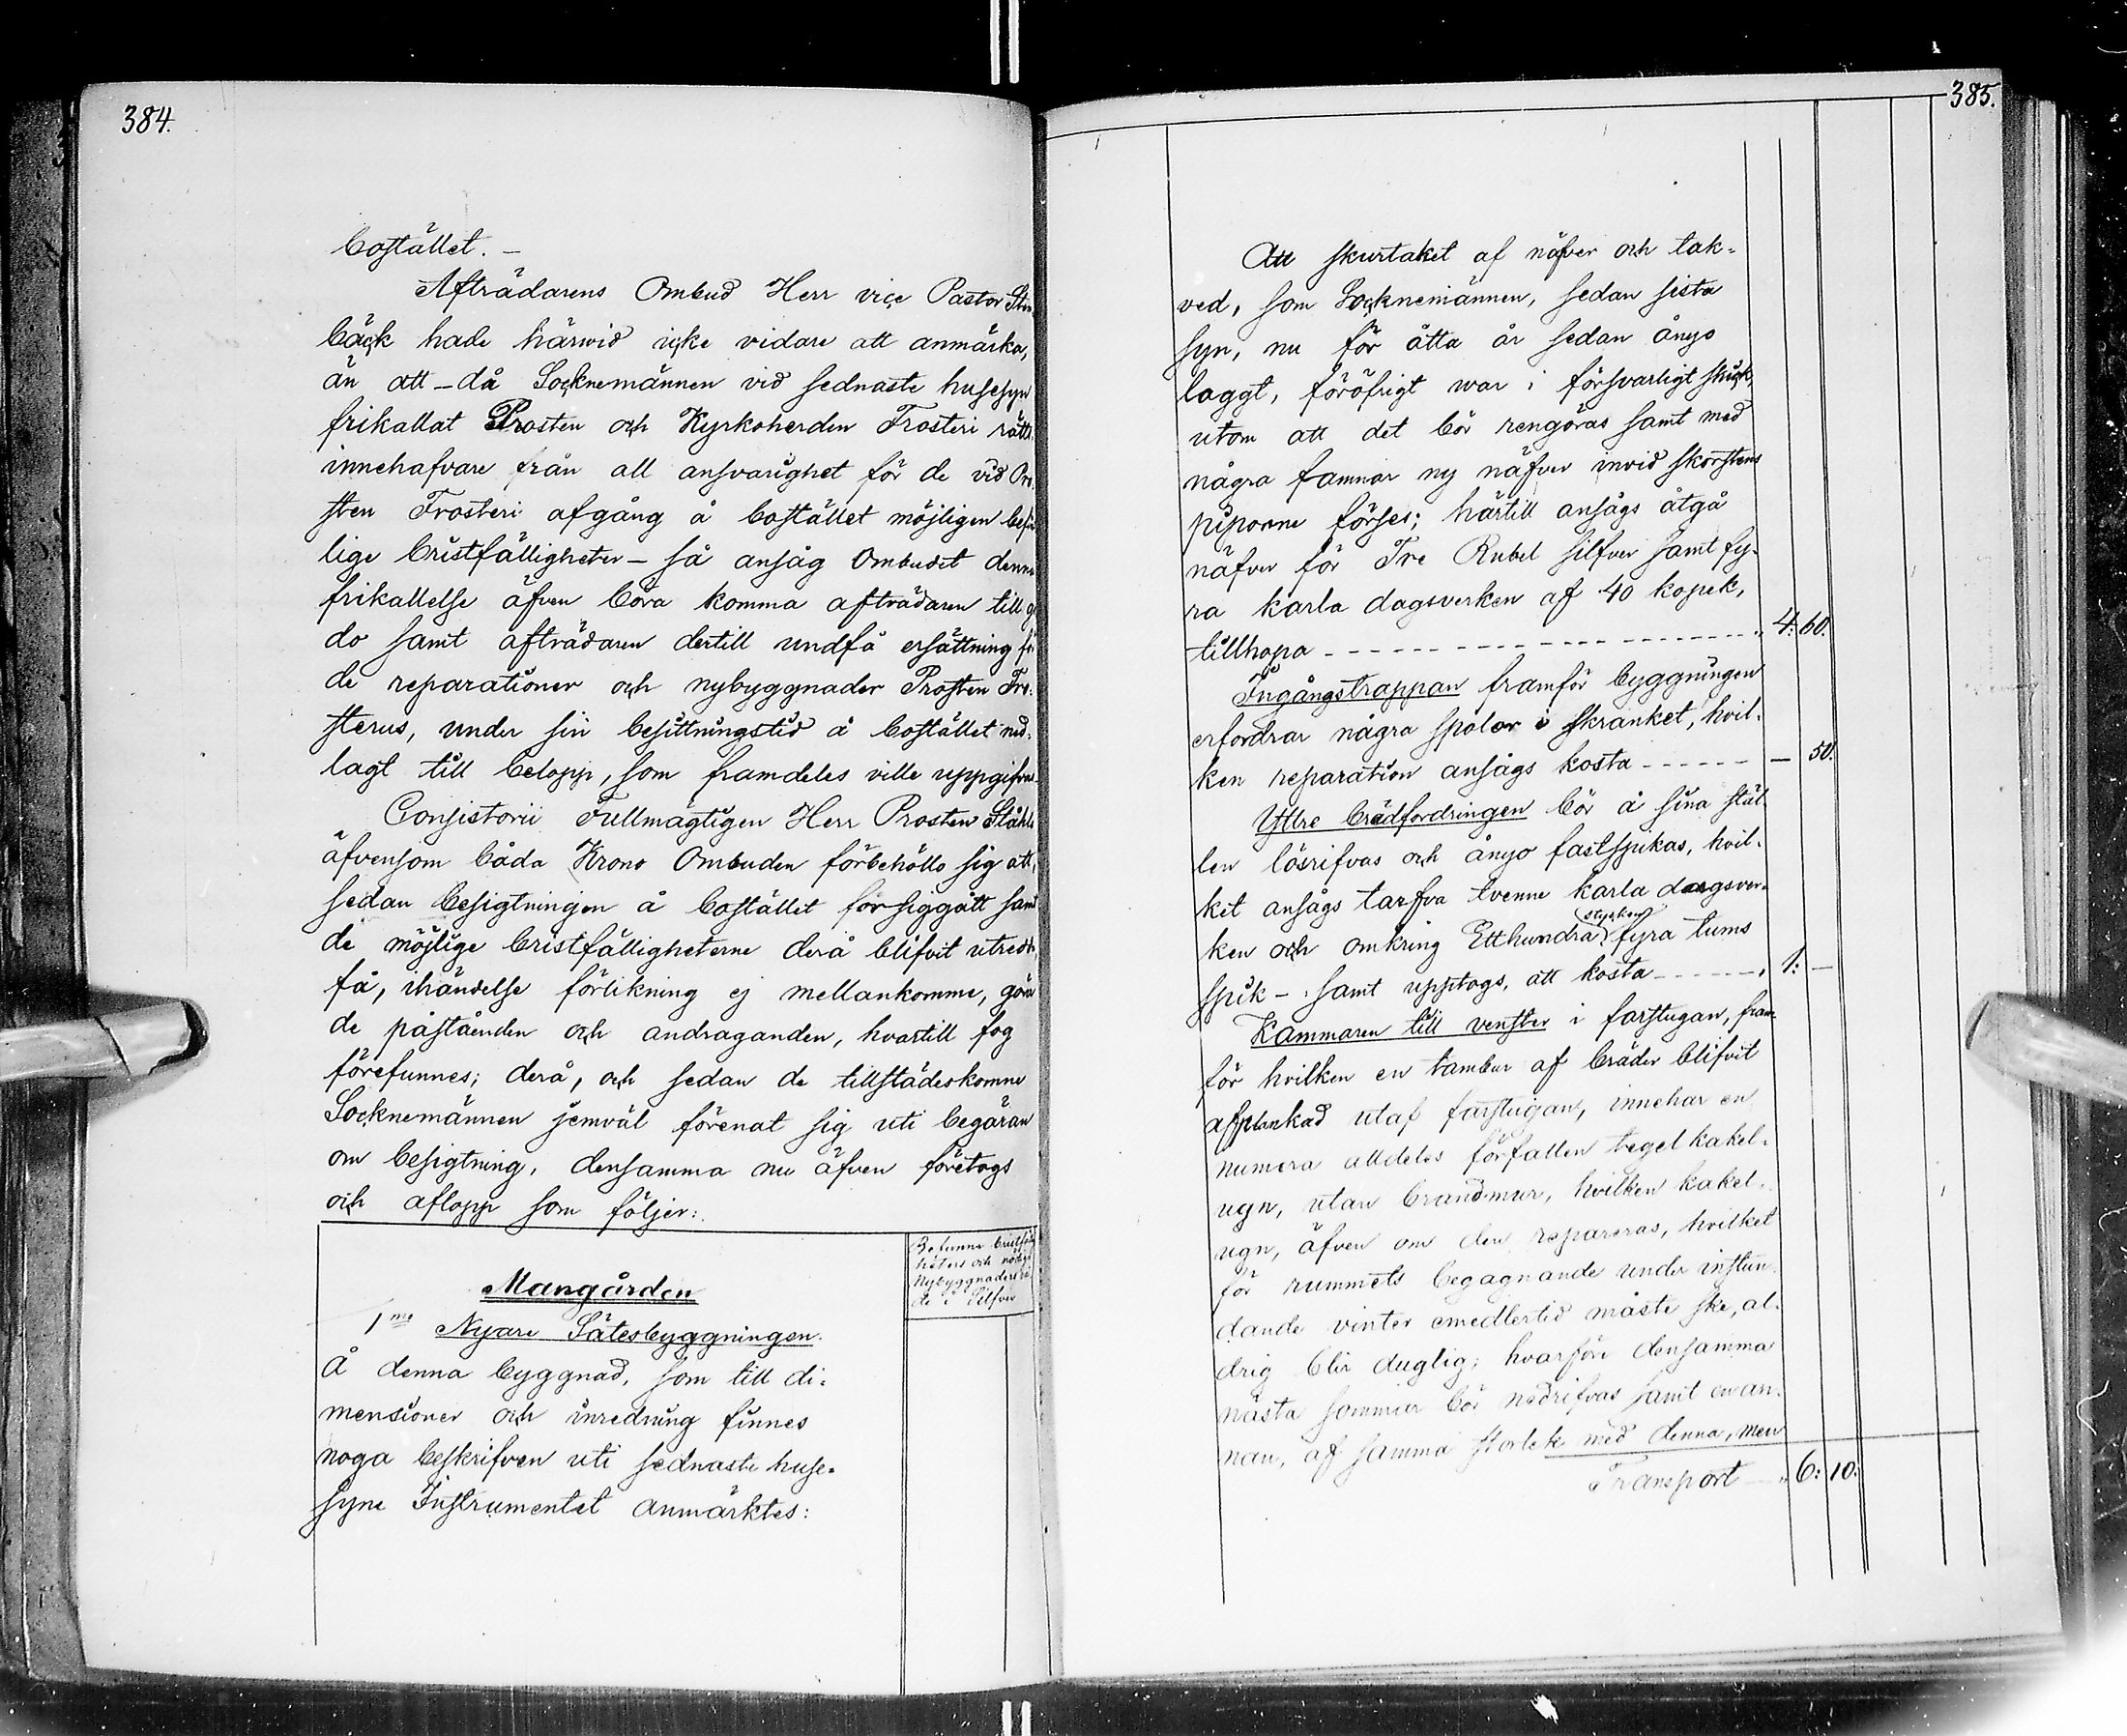 384.
bostället. –
Afträdarens Ombud Herr viçe Pastor Sten
bäck hade härwid icke vidare att anmärka,
än att – då Socknemännen vid sednaste husesyn
frikallat Prosten och Kyrkoherden Frosteri rätts
innehafvare från all ansvarighet för de vid Pro
sten Frosteri afgång å bostället möjligen befin
lige bristfälligheter – så ansåg Ombudet denna
frikallelse äfven böra komma afträdaren till go
do samt afträdaren dertill undfå ersättning för
de reparationer och nybyggnader Prosten Fro-
sterus, under sin besittningstid å bostället ned-
lagt till belopp, som framdeles ville uppgifva.
Consistorii Fullmägtigen Herr Prosten Ståhle
äfvensom båda Krono Ombuden förbehöllo sig att,
sedan besigtningen å bostället försiggått samt
de möjlige bristfälligheterne derå blifvit utredde,
få, ihändelse förlikning ej mellankomme, göra
de påståenden och andraganden, hvartill fog
förefunnes; derå, och sedan de tillstädeskomne
Socknemännen jemväl förenat sig uti begäran
om besigtning, densamma nu äfven företogs
och aflopp som följer:
Befunne bristfällig
heters och nödige
Nybyggnaders vär
de i Silfver
Mangården
1mo Nyare Sätesbyggningen.
Å denna byggnad, som till di-
mensioner och inredning finnes
noga beskrifven uti sednaste huse-
syne Instrumentet anmärktes:
385.
Att skurtaket af näfver och tak-
ved, som Socknemännen, sedan sista
syn, nu för åtta år sedan ånyo
laggt, föröfrigt war i försvarligt skick,
utom att det bör rengöras samt med
några famnar ny näfver invid skorstens
piporne förses; härtill ansågs åtgå
näfver för Tre Rubel silfver samt fy-
ra karla dagsverken af 40 kopek,
tillhopa - - - - - - - - - - - - - - - - - - „ 4: 60.
Ingångstrappan framför byggningen
erfordrar några spolar i skranket, hvil-
ken reparation ansågs kosta - - - - - - — 50.
Yttre brädfordringen bör å sina stäl-
len lösrifvas och ånyo fastspikas, hvil-
ket ansågs tarfva tvenne karla dagsver-
ken och omkring Etthundra stycken fyra tums
spik – samt upptogs, att kosta - - - - - - „ 1: —
Kammaren till venster i farstugan, fram-
för hvilken en tambur af bräder blifvit
afplankad utaf farstugan, innehar en
numera alldeles förfallen tegel kakel-
ugn, utan brandmur, hvilken kakel-
ugn, äfven om den repareras, hvilket
för rummets begagnande under instun-
dande vinter emedlertid måste ske, al-
drig blir duglig; hvarföre densamma
nästa sommar bör nedrifvas samt en an-
nan, af samma storlek med denna, men
Transport — „ 6: 10: